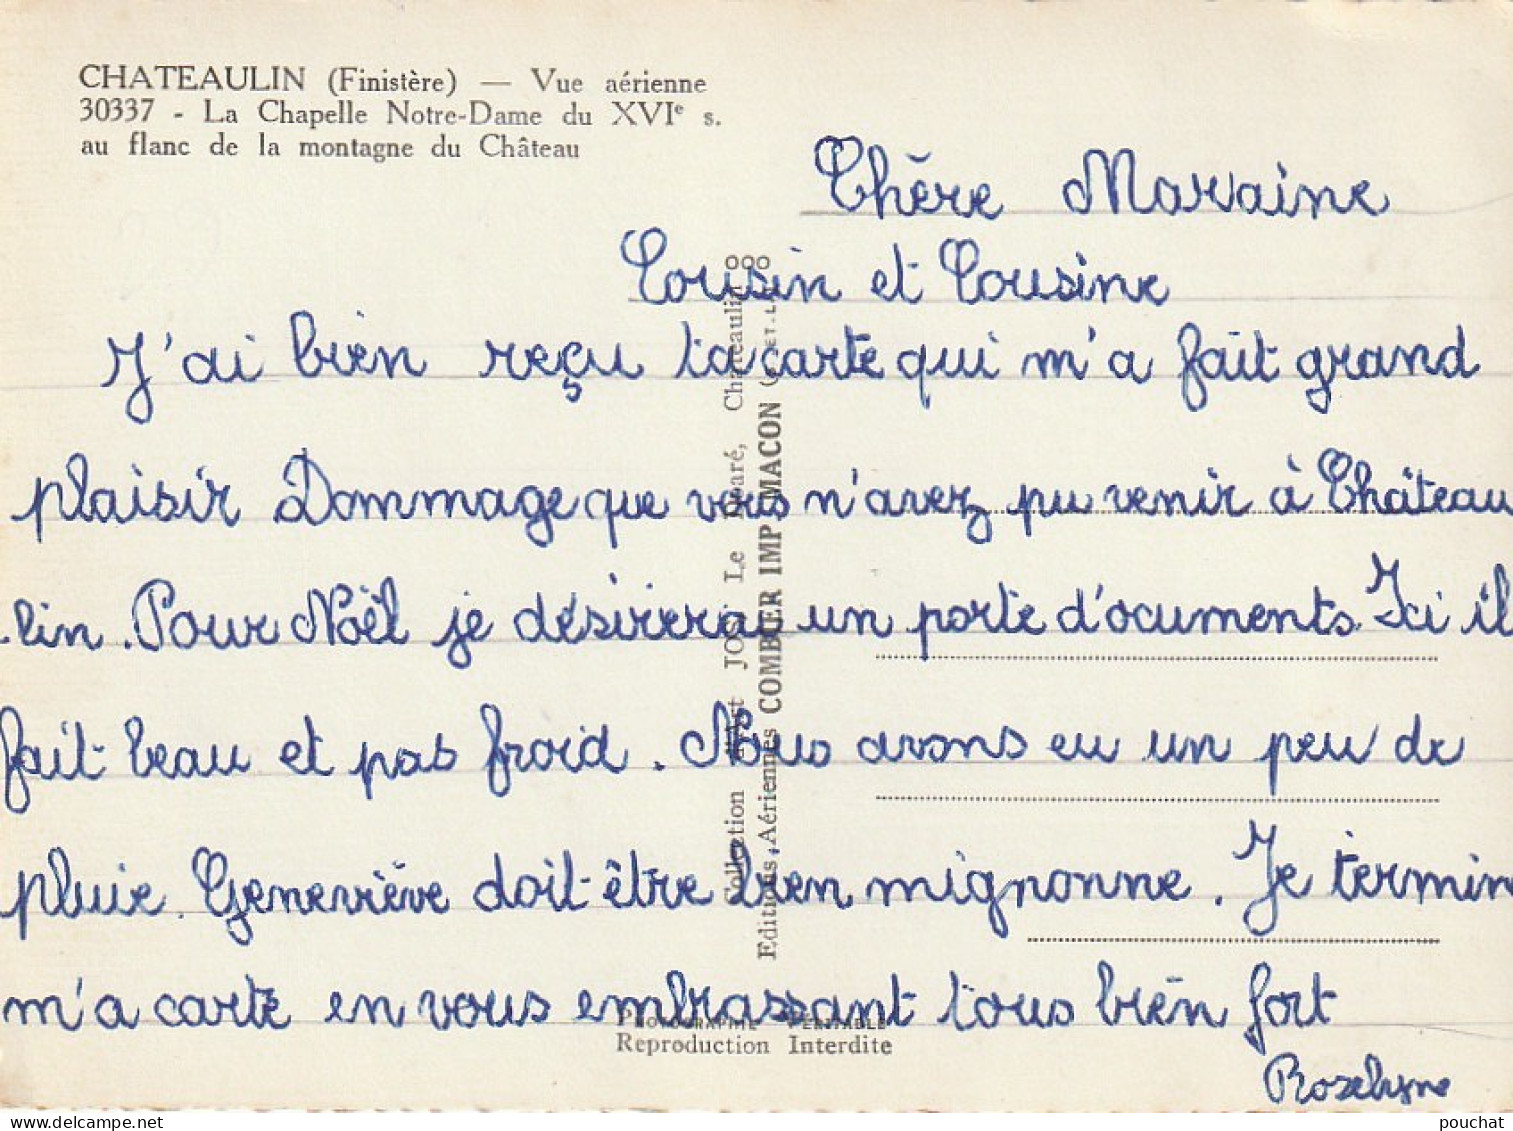 CHATEAULIN (Finistère) — Vue aérienne
30337 - La Chapelle Notre-Dame du XVIe s.
au flanc de la montagne du Château
Chère Marraine
Cousin et Cousine
J'ai bien reçu ta carte qui m'a fait grand
plaisir Dommage que vous n'avez pu venir à Château
-lin. Pour Noël je désirerai un porte d'ocuments. Ici il
fait beau et pas froid. Nous avons eu un peu de
pluie. Geneviève doit être bien mignonne. Je termine
m'a carte en vous embrassant tous bien fort
Roselyne
Collection d'Art JOS Le Doaré, Chateaulin
Editions Aériennes COMBIER IMP. MACON
PHOTOGRAPHIE VÉRITABLE
Reproduction Interdite
pouchat